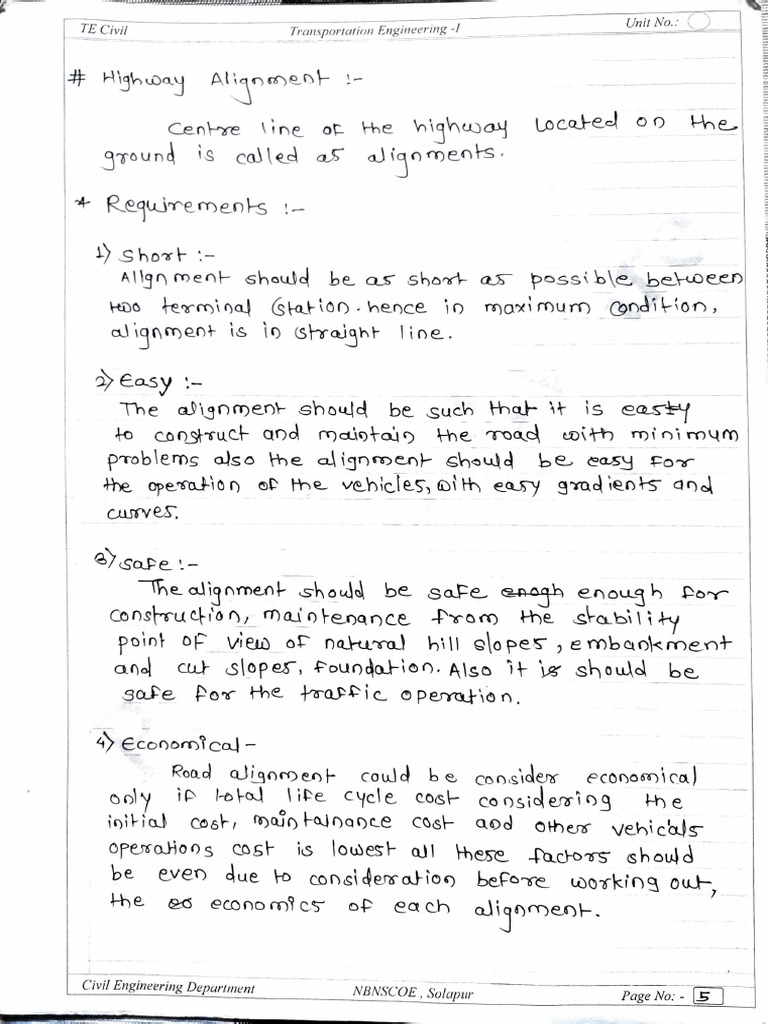 TE Civil Transportation Engineering -I Unit No.:
# Highway Alignment :-
Centre line of the highway located on the
ground is called as alignments.
* Requirements :-
1) Short :-
Alignment should be as short as possible between
two terminal station. hence in maximum condition,
alignment is in straight line.
2) Easy :-
The alignment should be such that it is easty
to construct and maintain the road with minimum
problems also the alignment should be easy for
the operation of the vehicles, with easy gradients and
curves.
3) Safe :-
The alignment should be safe enogh enough for
construction, maintenance from the stability
point of view of natural hill slopes, embankment
and cut slopes, foundation. Also it is should be
safe for the traffic operation.
4) Economical -
Road alignment could be consider economical
only if total life cycle cost considering the
initial cost, maintainance cost and other vehicals
operations cost is lowest all these factors should
be even due to consideration before working out,
the eo economics of each alignment.
Civil Engineering Department NBNSCOE, Solapur Page No: - 5